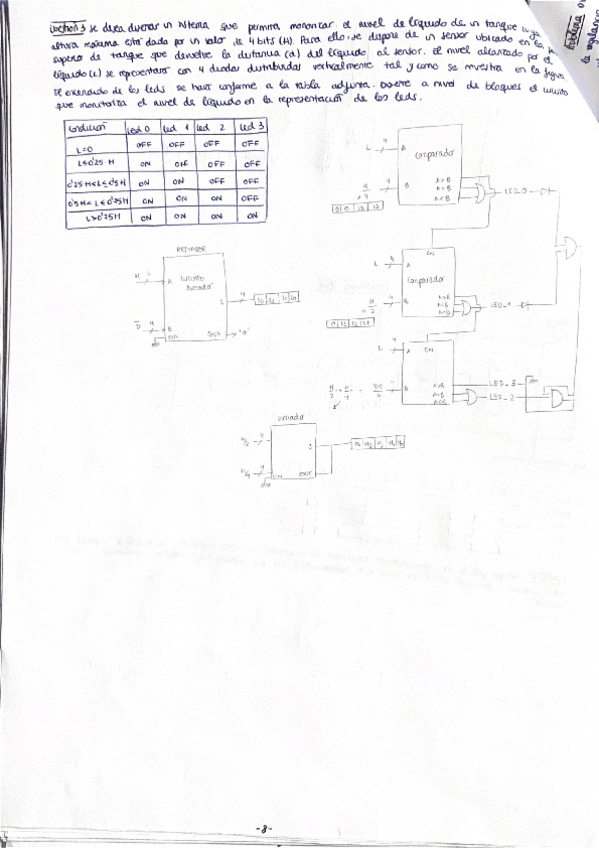 Cuestion 3 Se desea diseñar un sistema que permita monorizar el nivel de líquido de un tanque cuya
altura máxima está dada por un valor de 4 bits (H). Para ello, se dispone de un sensor ubicado en la
superior de tanque que devuelve la distancia (d) del líquido al sensor. El nivel alcanzado por el
líquido (L) se representará con 4 diodos distribuidos verticalmente tal y como se muestra en la figura
El encendido de los leds se hará conforme a la tabla adjunta. Diseñe a nivel de bloques el circuito
que monitoriza el nivel de líquido en la representación de los leds.
Problema
la vigilancia
Condición Led 0 Led 1 Led 2 Led 3
L=0 OFF OFF OFF OFF
L≤0'25·H ON OFF OFF OFF
0'25H<L≤0'5H ON ON OFF OFF
0'5H<L≤0'75H ON ON ON OFF
L>0'75H ON ON ON ON
RESTADOR
H 4 A
Circuito
Sumador
S 4
D 4 B
CIN
COUT "0"
L 4 A
Comparador
B
A>B
A=B
A<B
LED_0
CIN
L 4 A
Comparador
H/2 B
A>B
A=B
A<B
LED_1
L 4 A CIN
H/2 + H/4 3H/4 4 B
A>B
A=B
A<B
LED_3
LED_2
Sumador
H/2 4
S
H/4 4
CIN
COUT
-8-